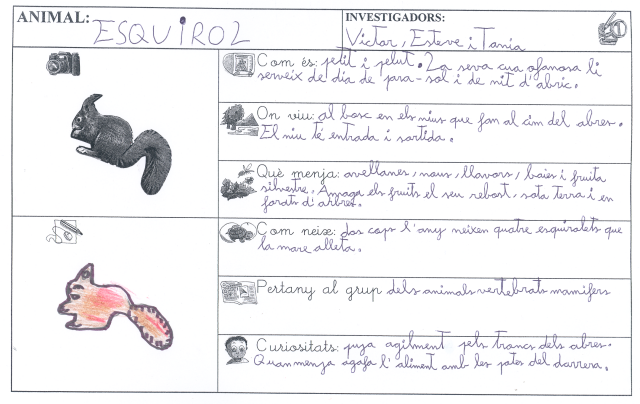 ANIMAL: ESQUIROL
INVESTIGADORS:
Víctor, Esteve i Tania
Com és: petit i pelut. La seva cua ofanosa li
serveix de dia de para-sol i de nit d'abric.
On viu: al bosc en els nius que fan al cim del abres.
El niu té entrada i sortida.
Què menja: avellanes, nous, llavors, baies i fruita
silvestre. Amaga els fruits el seu rebost, sota terra i en
forats d'arbres.
Com neix: dos cops l'any neixen quatre esquirolets que
la mare alleta.
Pertany al grup dels animals vertebrats mamifers
Curiositats: puja agilment pels troncs dels abres.
Quan menja agafa l'aliment amb les potes del darrera.